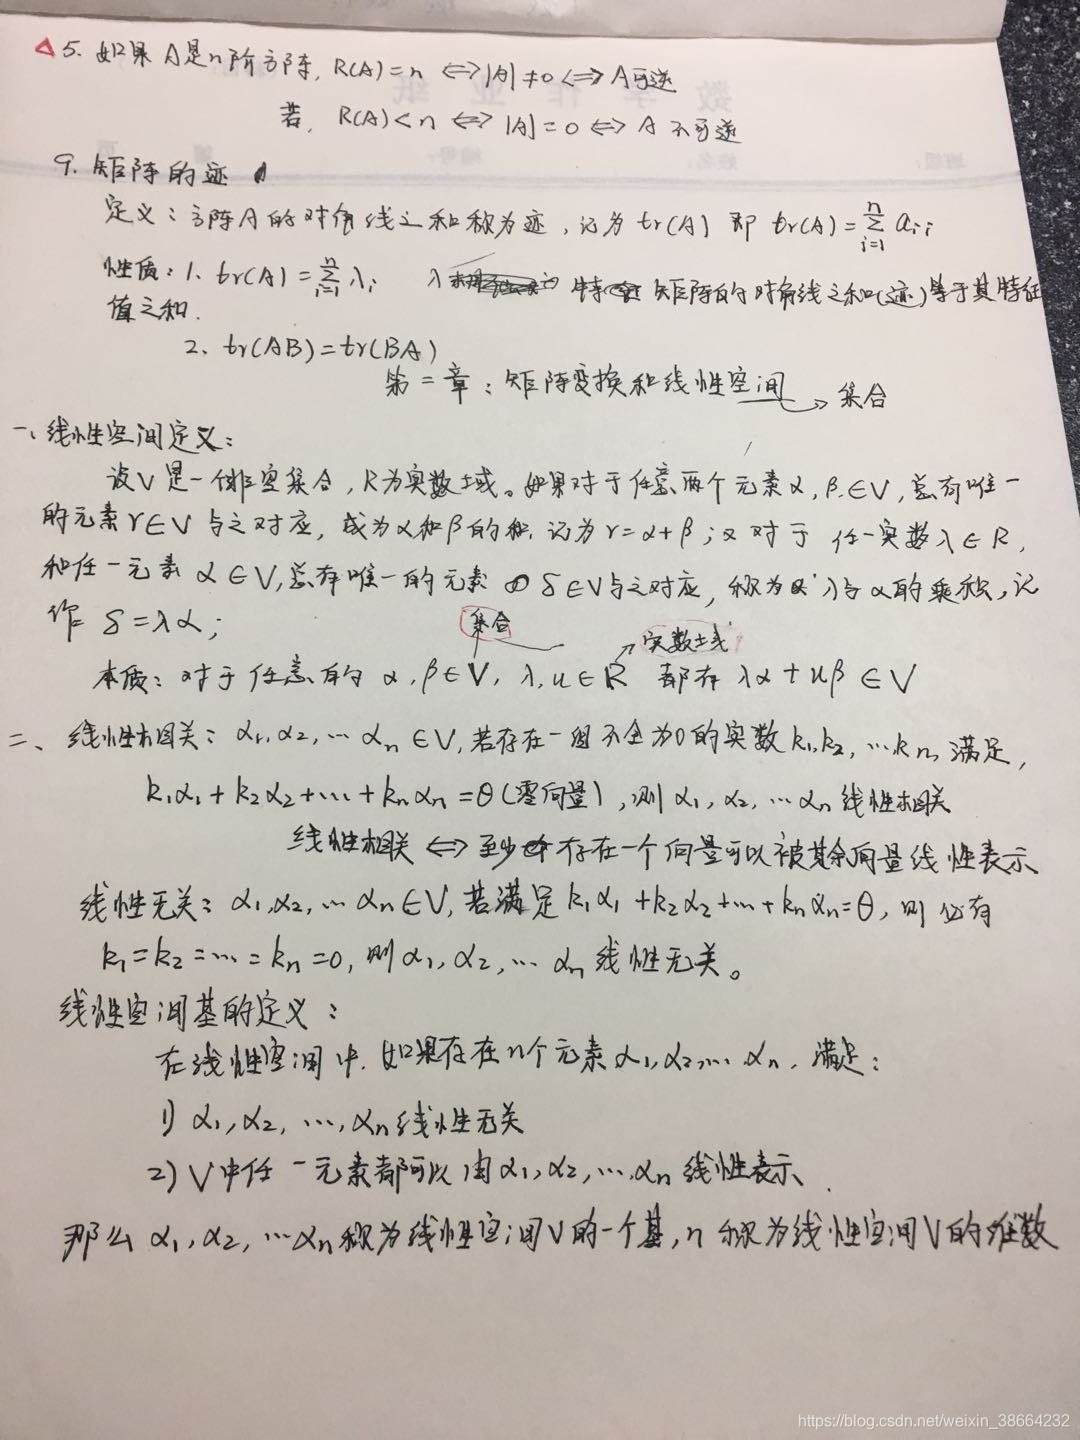 △ 5. 如果 A是n阶方阵, R(A)=n ⇔ |A|≠0 ⇔ A可逆
若, R(A)<n ⇔ |A|=0 ⇔ A 不可逆
9. 矩阵的迹
定义: 方阵A的对角线之和称为迹, 记为 tr(A) 即 tr(A)=∑_{i=1}^{n} a_{ii}
性质: 1. tr(A)=∑_{i=1}^{n} λ_i 矩阵的对角线之和(迹)等于其特征
值之和.
2. tr(AB)=tr(BA)
第二章: 矩阵变换和线性空间 → 集合
一、线性空间定义:
设V是一个非空集合, R为实数域。如果对于任意两个元素 α, β∈V, 总有唯一
的元素 r∈V 与之对应, 成为α和β的和, 记为 r=α+β; 又对于 任一实数 λ∈R,
和任一元素 α∈V, 总有唯一的元素 δ∈V与之对应, 称为 λ与α的乘积, 记
作 δ=λα;
集合
实数域
本质: 对于任意的 α, β∈V, λ, u∈R 都有 λα+uβ∈V
二、线性相关: α₁, α₂, … αn∈V, 若存在一组不全为0的实数 k₁, k₂, …kn, 满足,
k₁α₁+k₂α₂+…+knαn=θ(零向量), 则 α₁, α₂, … αn 线性相关
线性相关 ⇔ 至少存在一个向量可以被其余向量线性表示
线性无关: α₁, α₂, … αn∈V, 若满足 k₁α₁+k₂α₂+…+knαn=θ, 则必有
k₁=k₂=…=kn=0, 则 α₁, α₂, … αn 线性无关。
线性空间基的定义:
在线性空间中, 如果存在n个元素 α₁, α₂, … αn, 满足:
1) α₁, α₂, …, αn 线性无关
2) V中任一元素都可以由 α₁, α₂, …, αn 线性表示
那么 α₁, α₂, …αn称为线性空间V的一个基, n 称为线性空间V的维数
https://blog.csdn.net/weixin_38664232